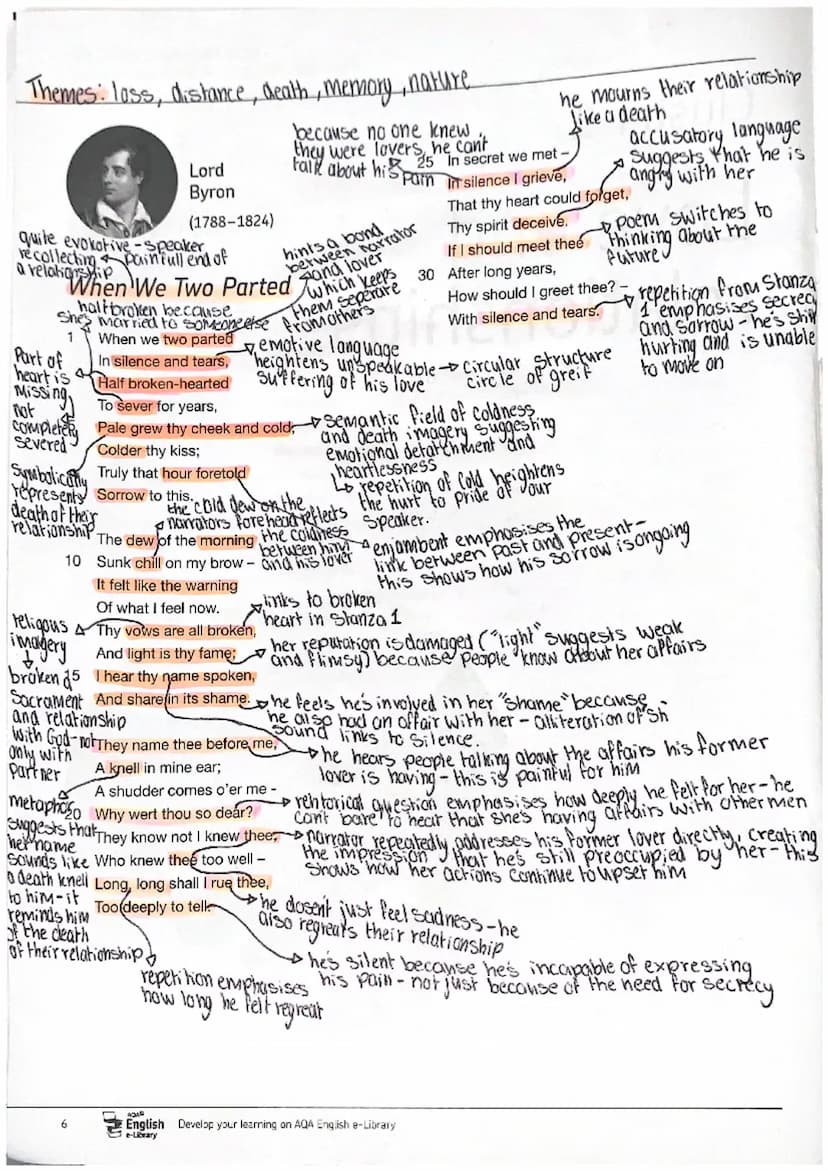 Themes: loss, distance, death, memory, nature
Lord
Byron
(1788–1824)
quite evokotive - speaker
recollecting painfull end of
a relationship
hints a bond
between narrator
and lover
which keeps
them seperate
from others
When We Two Parted
half broken because
she's married to someone else
1 When we two parted
In silence and tears,
Half broken-hearted
To sever for years,
Pale grew thy cheek and cold,
Colder thy kiss;
Truly that hour foretold
Sorrow to this.
emotive language
heightens unspeakable
suffering of his love
circular structure
circle of greif
Part of
heart is
missing
not
completely
severed
semantic field of coldness
and death imagery suggesting
emotional detatchment and
heartlessness
repetition of cold heightens
the hurt to pride of our
speaker.
Symbolically
represents
death of their
relationship
the cold dew on the
narrators forehead reflects
the coldness
between him
and his lover
The dew of the morning
10 Sunk chill on my brow –
It felt like the warning
Of what I feel now.
Thy vows are all broken,
And light is thy fame;
I hear thy name spoken,
And share in its shame.
enjambent emphasises the
link between past and present-
this shows how his sorrow is ongoing
links to broken
heart in Stanza 1
her reputation is damaged ("light" suggests weak
and flimsy) because people know about her affairs
he feels he's involved in her "shame" because
he also had an affair with her - alliteration of sh
sound links to silence.
religous
imagery
broken 15
Sacrament
and relationship
with God-not
only with
partner
They name thee before me,
A knell in mine ear;
A shudder comes o'er me -
20 Why wert thou so dear?
They know not I knew thee,
Who knew thee too well –
Long, long shall I rue thee,
Too deeply to tell.
he hears people talking about the affairs his former
lover is having - this is painful for him
rehtorical question emphasises how deeply he felt for her - he
can't bare to hear that she's having affairs with other men
narrator repeatedly addresses his former lover directly, creating
the impression that he's still preoccupied by her - this
shows how her actions continue to upset him
metaphor
suggests that
her name
sounds like
a death knell
to him - it
reminds him
of the death
of their relationship
he dosent just feel sadness - he
also regreats their relationship
he's silent because he's incapable of expressing
his pain - not just because of the need for secrecy
repetition emphasises
how long he felt regreat
because no one knew
they were lovers, he cant
talk about his pain
he mourns their relationship
like a death
25 In secret we met –
In silence I grieve,
That thy heart could forget,
Thy spirit deceive.
If I should meet thee
30 After long years,
How should I greet thee? –
With silence and tears.
accusatory language
suggests that he is
angry with her
poem switches to
thinking about the
future
repetition from Stanza
1 emphasises secrecy
and sorrow - he's still
hurting and is unable
to move on
6
AQA
English
e-Library
Develop your learning on AQA English e-Library